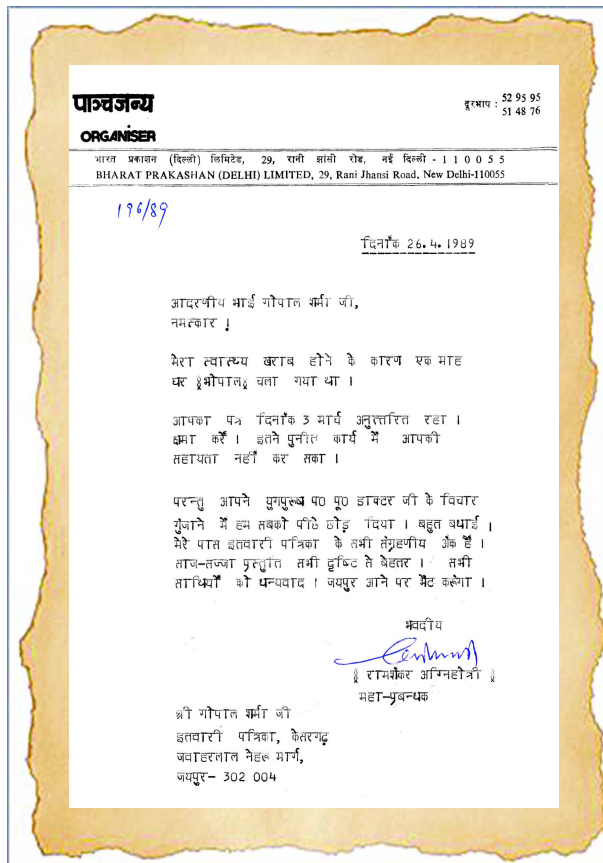 पाञ्चजन्य
ORGANISER
दूरभाष : 52 95 95
51 48 76
भारत प्रकाशन (दिल्ली) लिमिटेड, 29, रानी झांसी रोड, नई दिल्ली - 110055
BHARAT PRAKASHAN (DELHI) LIMITED, 29, Rani Jhansi Road, New Delhi-110055
196/89
दिनाँक 26.4.1989
आदरणीय भाई गोपाल शर्मा जी,
नमस्कार !
मेरा स्वास्थ्य खराब होने के कारण एक माह
घर (भोपाल) चला गया था ।
आपका पत्र दिनाँक 3 मार्च अनुत्तरित रहा ।
क्षमा करेँ । इतने पुनीत कार्य मेँ आपकी
सहायता नहीँ कर सका ।
परन्तु आपने युगपुरूष प0 पू0 डाक्टर जी के विचार
गुंजाने मेँ हम सबको पीछे छोड़ दिया । बहुत बधाई ।
मेरे पास इतवारी पत्रिका के सभी संग्रहणीय अंक हैँ ।
साज-सज्जा प्रस्तुति सभी दृष्टि से बेहतर । सभी
साथियोँ को धन्यवाद । जयपुर आने पर भेँट करूंगा ।
भवदीय
( रामशंकर अग्निहोत्री )
महा-प्रबन्धक
श्री गोपाल शर्मा जी
इतवारी पत्रिका, केसरगढ़
जवाहरलाल नेहरू मार्ग,
जयपुर- 302 004